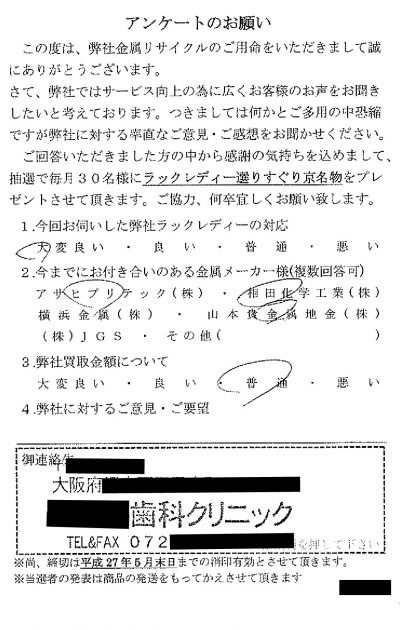 アンケートのお願い
この度は、弊社金属リサイクルのご用命をいただきまして誠
にありがとうございます。
さて、弊社ではサービス向上の為に広くお客様のお声をお聞き
したいと考えております。つきましては何かとご多用の中恐縮
ですが弊社に対する率直なご意見・ご感想をお聞かせください。
ご回答いただきました方の中から感謝の気持ちを込めまして、
抽選で毎月30名様にラックレディー選りすぐり京名物をプレ
ゼントさせて頂きます。ご協力、何卒宜しくお願い致します。
1.今回お伺いした弊社ラックレディーの対応
大変良い ・ 良い ・ 普通 ・ 悪い
2.今までにお付き合いのある金属メーカー様(複数回答可)
アサヒプリテック(株) ・ 相田化学工業(株)
横浜金属(株) ・ 山本貴金属地金(株)
(株)JGS ・ その他( )
3.弊社買取金額について
大変良い ・ 良い ・ 普通 ・ 悪い
4.弊社に対するご意見・ご要望
御連絡先
〒
大阪府
歯科クリニック
TEL&FAX 072
を押して下さい
※尚、締切は平成27年5月末日までの消印有効とさせて頂きます。
※当選者の発表は商品の発送をもってかえさせて頂きます